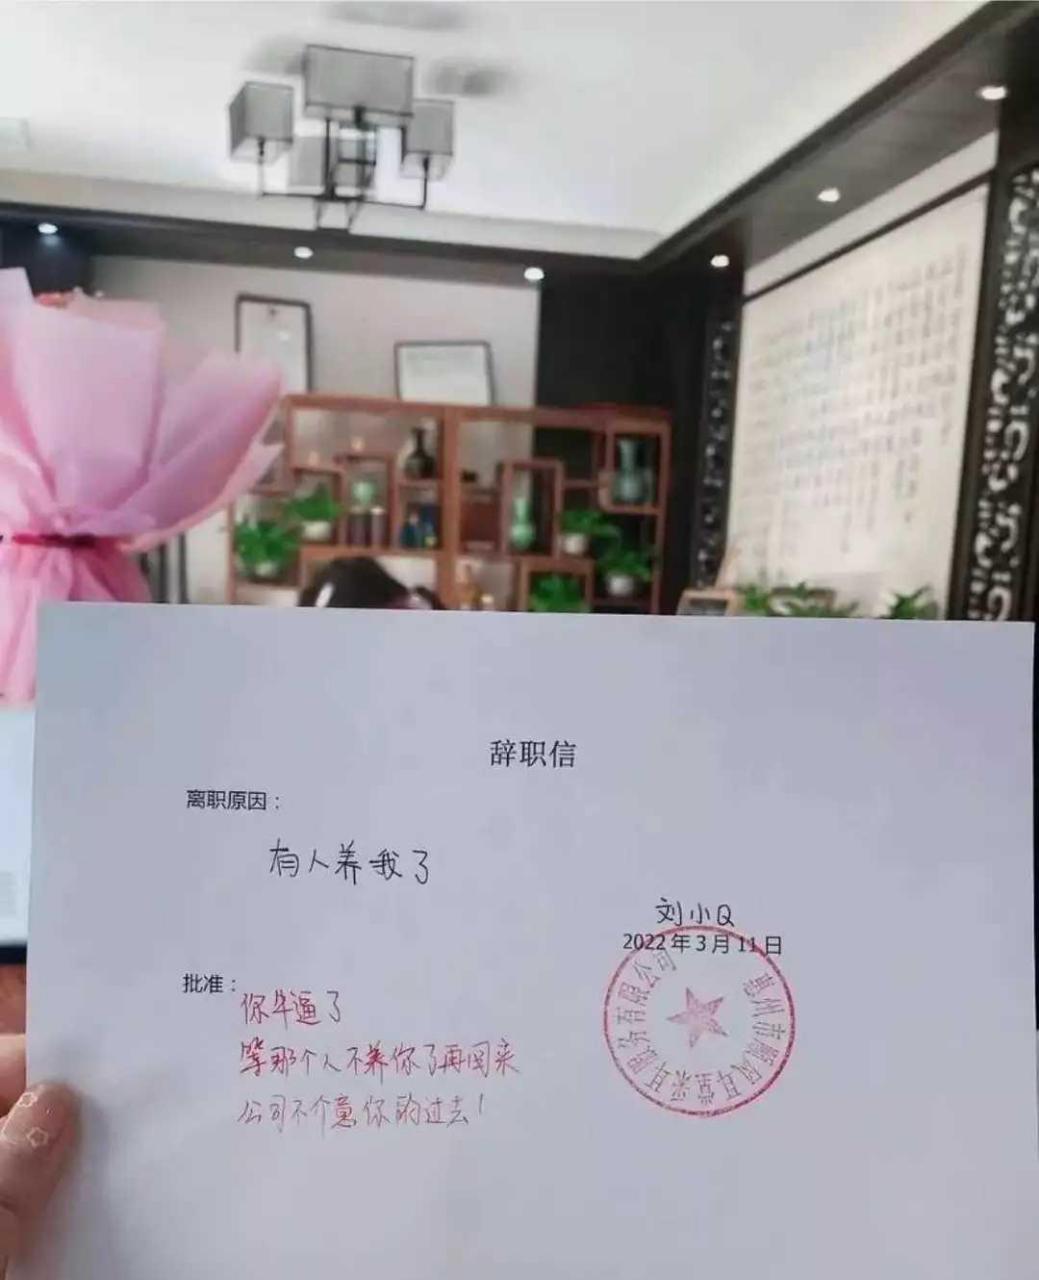 辞职信
离职原因：
有人养我了
刘小Q
2022年3月11日
批准：
你牛逼了
等那个人不养你了再回来
公司不介意你的过去！
惠州市顺风耳堂采耳服务有限公司